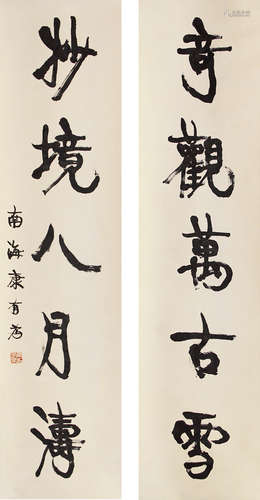 奇觀萬古雪
妙境八月濤
南海康有為